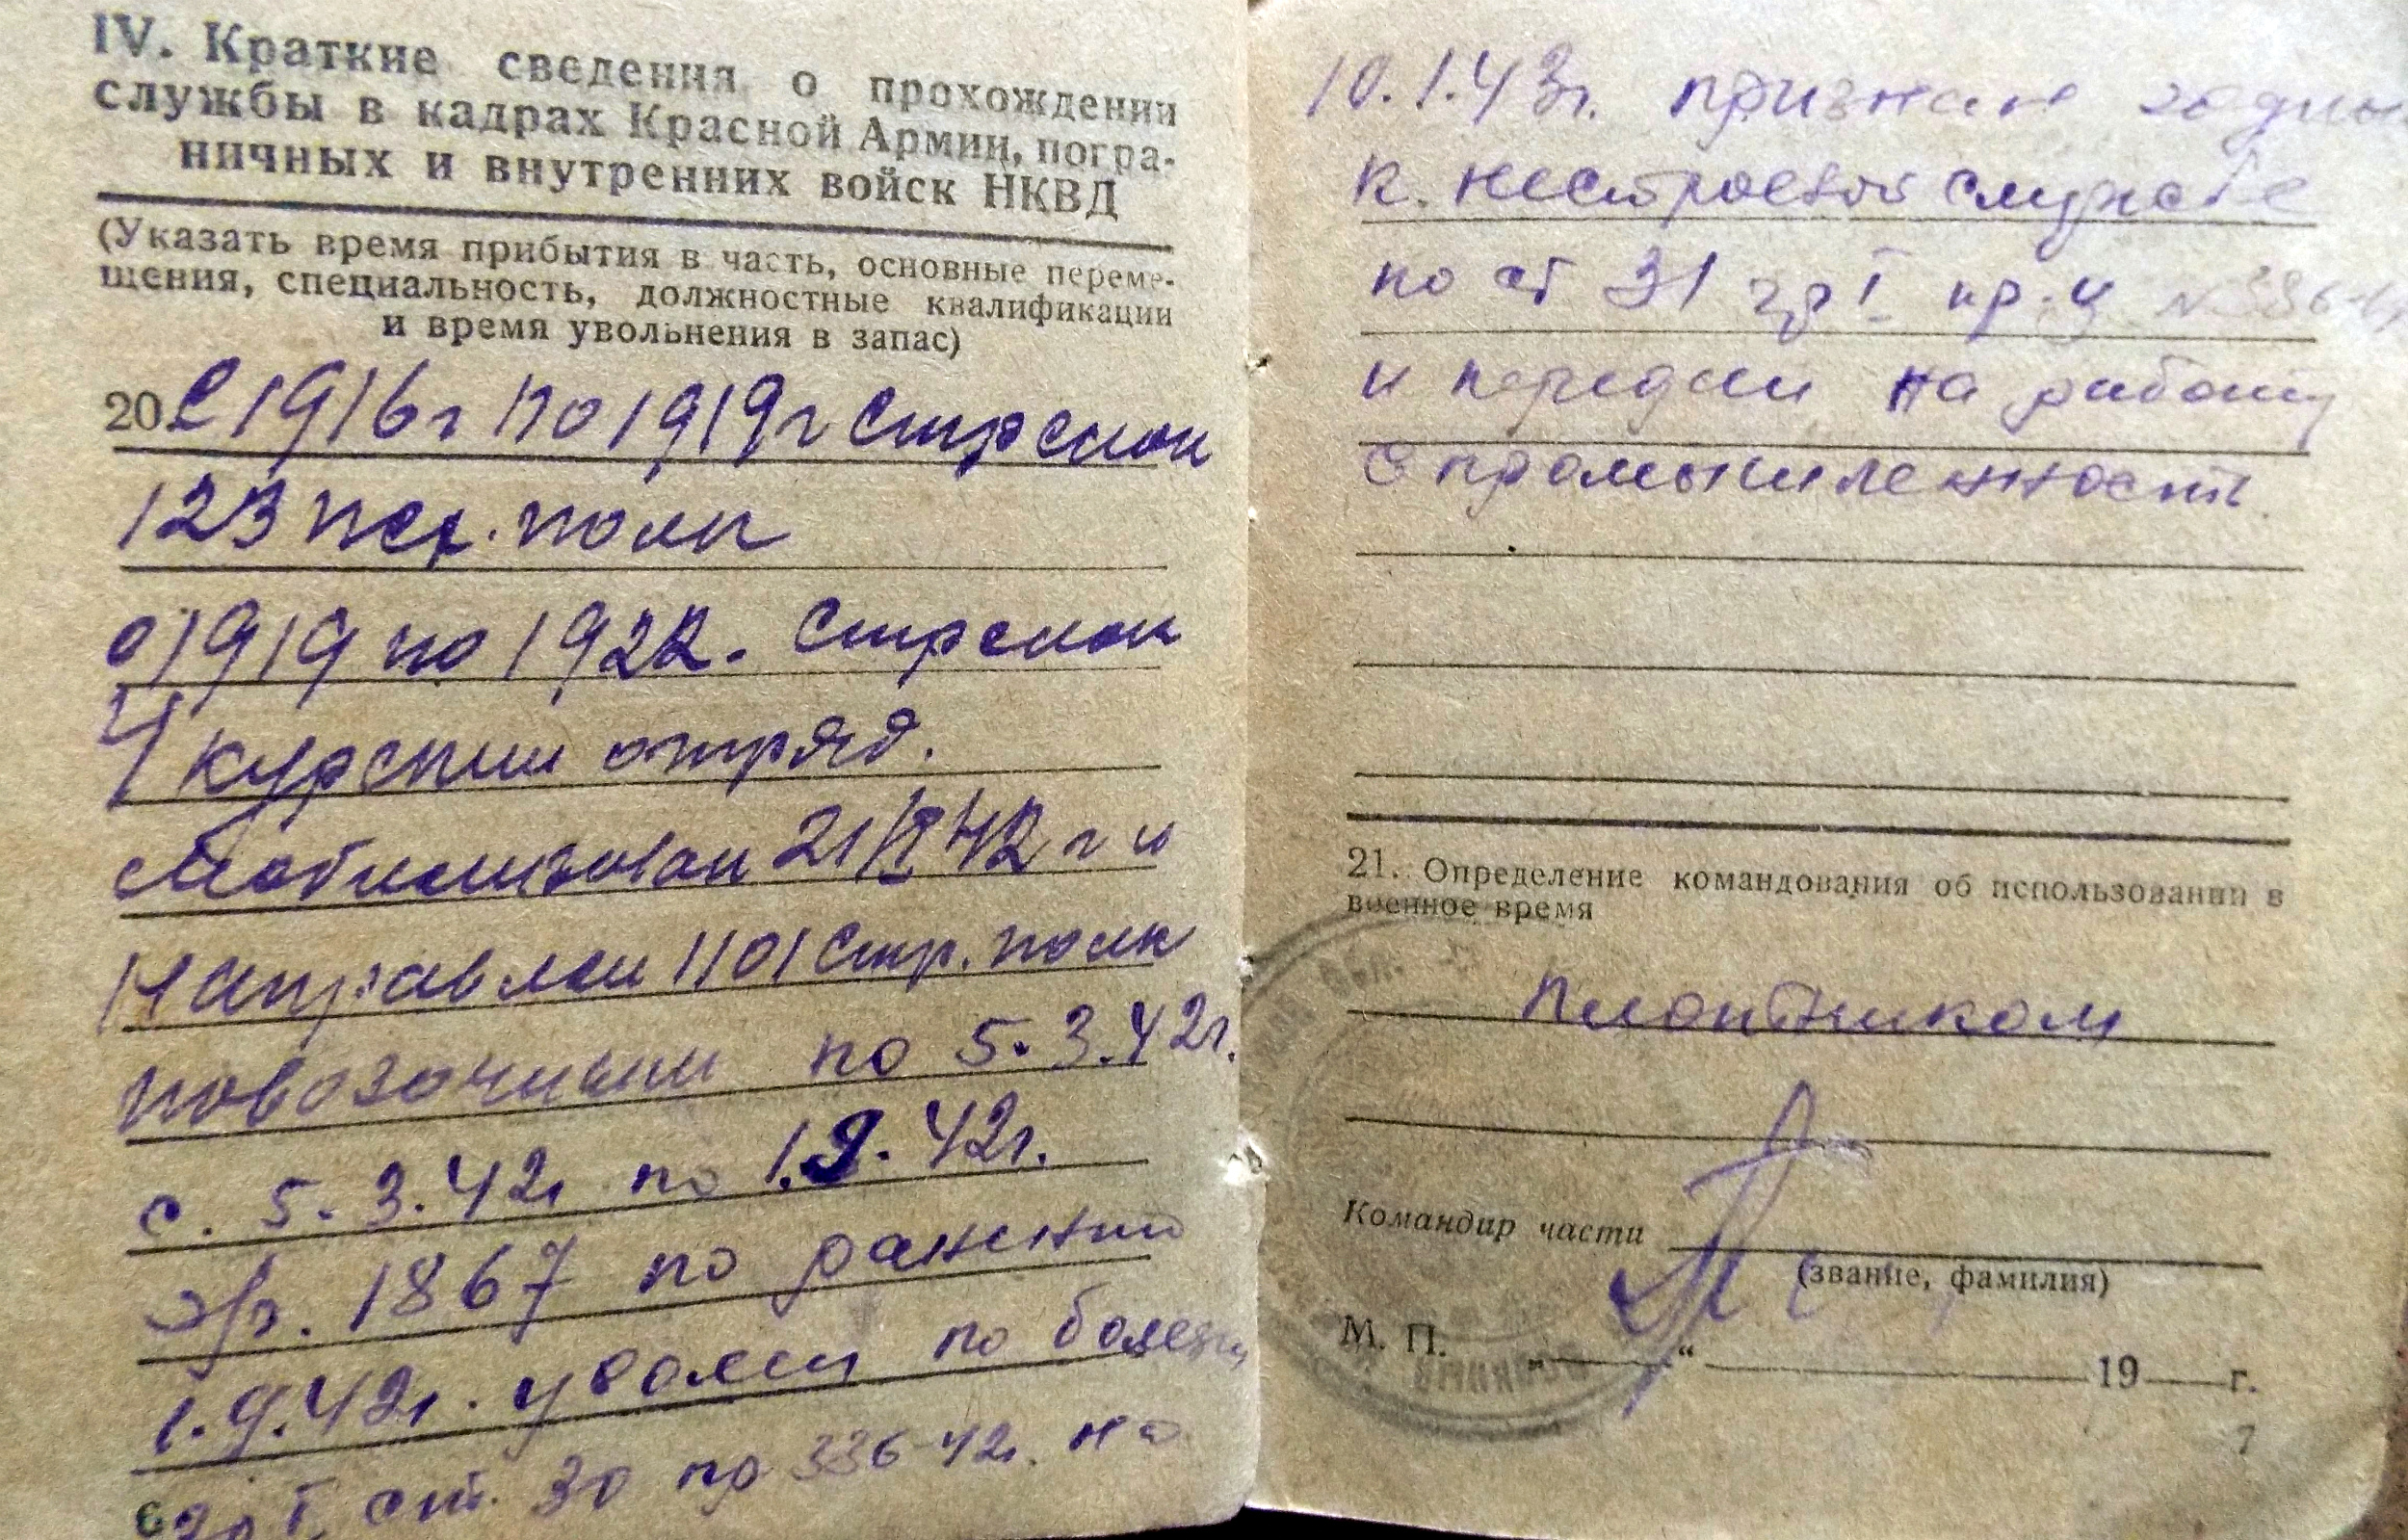 IV. Краткие сведения о прохождении
службы в кадрах Красной Армии, погра-
ничных и внутренних войск НКВД
(Указать время прибытия в часть, основные переме-
щения, специальность, должностные квалификации
и время увольнения в запас)
20 С 1916г по 1919г Стрелок
123 полк
с 1919 по 1922. Стрелок
4 Курский отряд.
Мобилизован 21/II 42 г и
Направлен 1101 Стр. полк
повозочным по 5.3.42г.
с. 5.3.42г по 1.9.42г.
э/г. 1867 по ранению
1.9.42г. уволен по болезни
гр I ст. 30 пр 336-42г. на
6
10.1.43г. признан годным
к. нестроевой службе
по ст 31 гр I пр.
и передан на работу
в промышленность.
21. Определение командования об использовании в
военное время
Плотником
Командир части
(звание, фамилия)
М. П. „ “ 19 г.
7